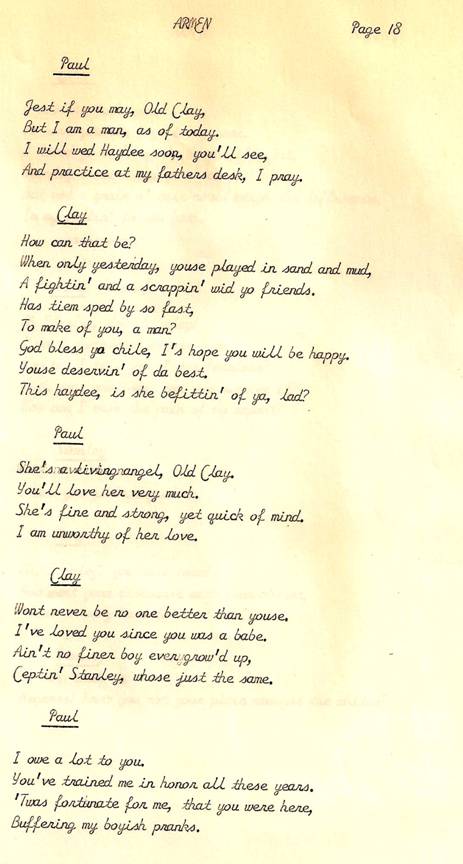 ARMEN
Page 18
Paul
Jest if you may, Old Clay,
But I am a man, as of today.
I will wed Haydee soon, you'll see,
And practice at my fathers desk, I pray.
Clay
How can that be?
When only yesterday, youse played in sand and mud,
A fightin' and a scrappin' wid yo friends.
Has tiem sped by so fast,
To make of you, a man?
God bless ya chile, I's hope you will be happy.
Youse deservin' of da best.
This haydee, is she befittin' of ya, lad?
Paul
She's a living angel, Old Clay.
You'll love her very much.
She's fine and strong, yet quick of mind.
I am unworthy of her love.
Clay
Wont never be no one better than youse.
I've loved you since you was a babe.
Ain't no finer boy ever grow'd up,
Ceptin' Stanley, whose just the same.
Paul
I owe a lot to you.
You've trained me in honor all these years.
'Twas fortunate for me, that you were here,
Buffering my boyish pranks.